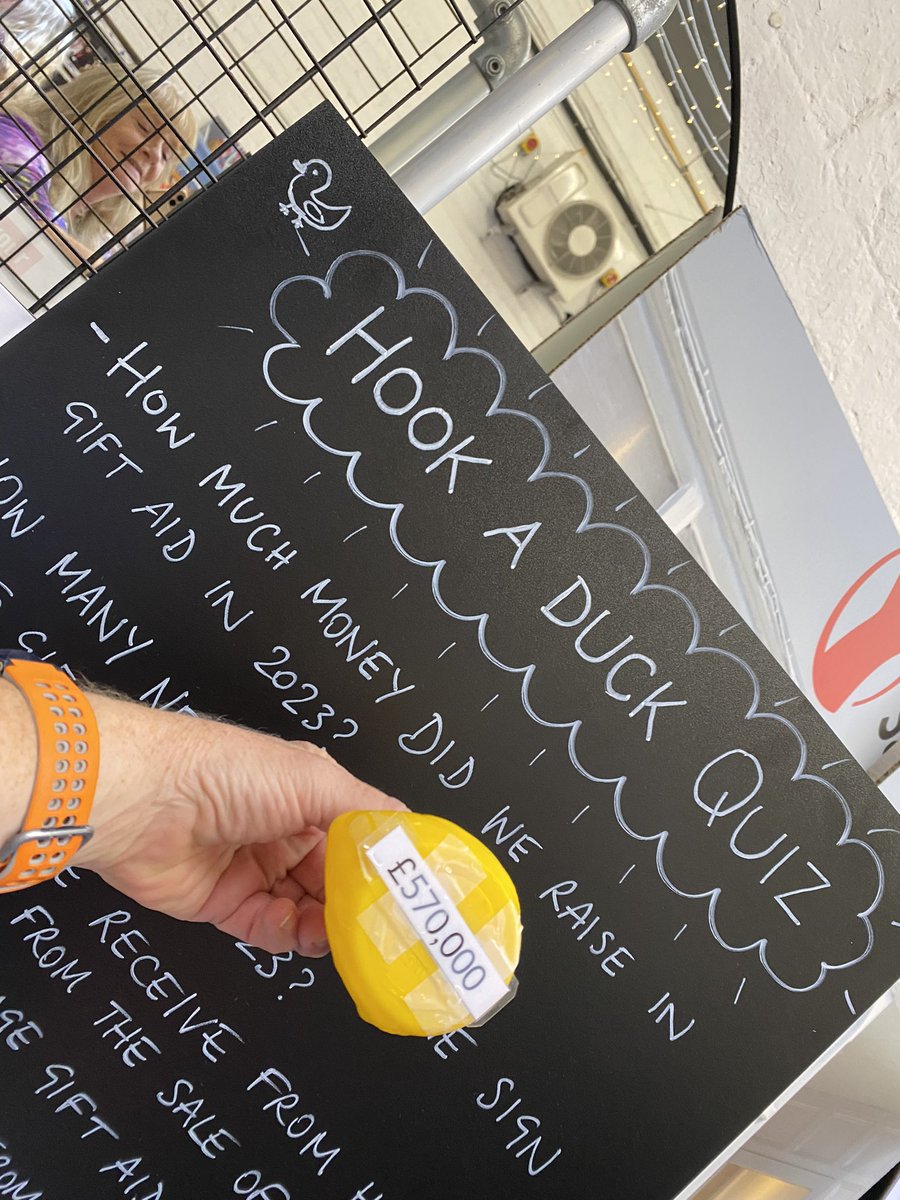 HOOK A DUCK QUIZ
- HOW MUCH MONEY DID WE RAISE IN
GIFT AID IN 2023?
HOW MANY SIGN
23?
RECEIVE FROM
FROM THE SALE OF
GIFT AID
FROM
£570,000